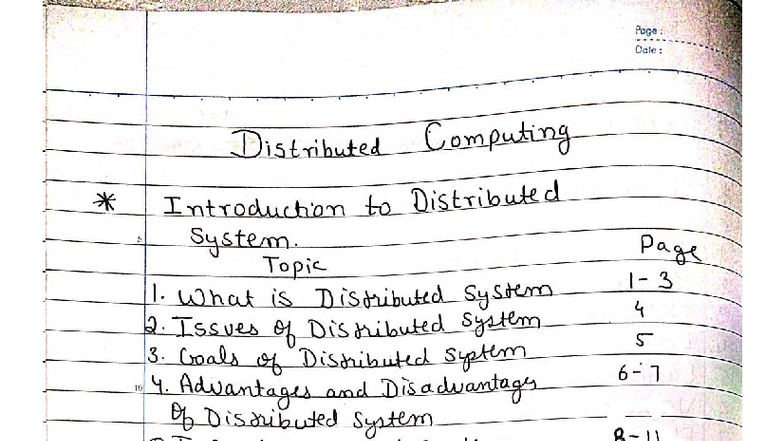 Page :
Date :
Distributed Computing
* Introduction to Distributed
System.
Topic Page
1. What is Distributed System 1-3
2. Issues of Distributed System 4
3. Goals of Distributed System 5
4. Advantages and Disadvantages 6-7
Of Distributed System
8-11